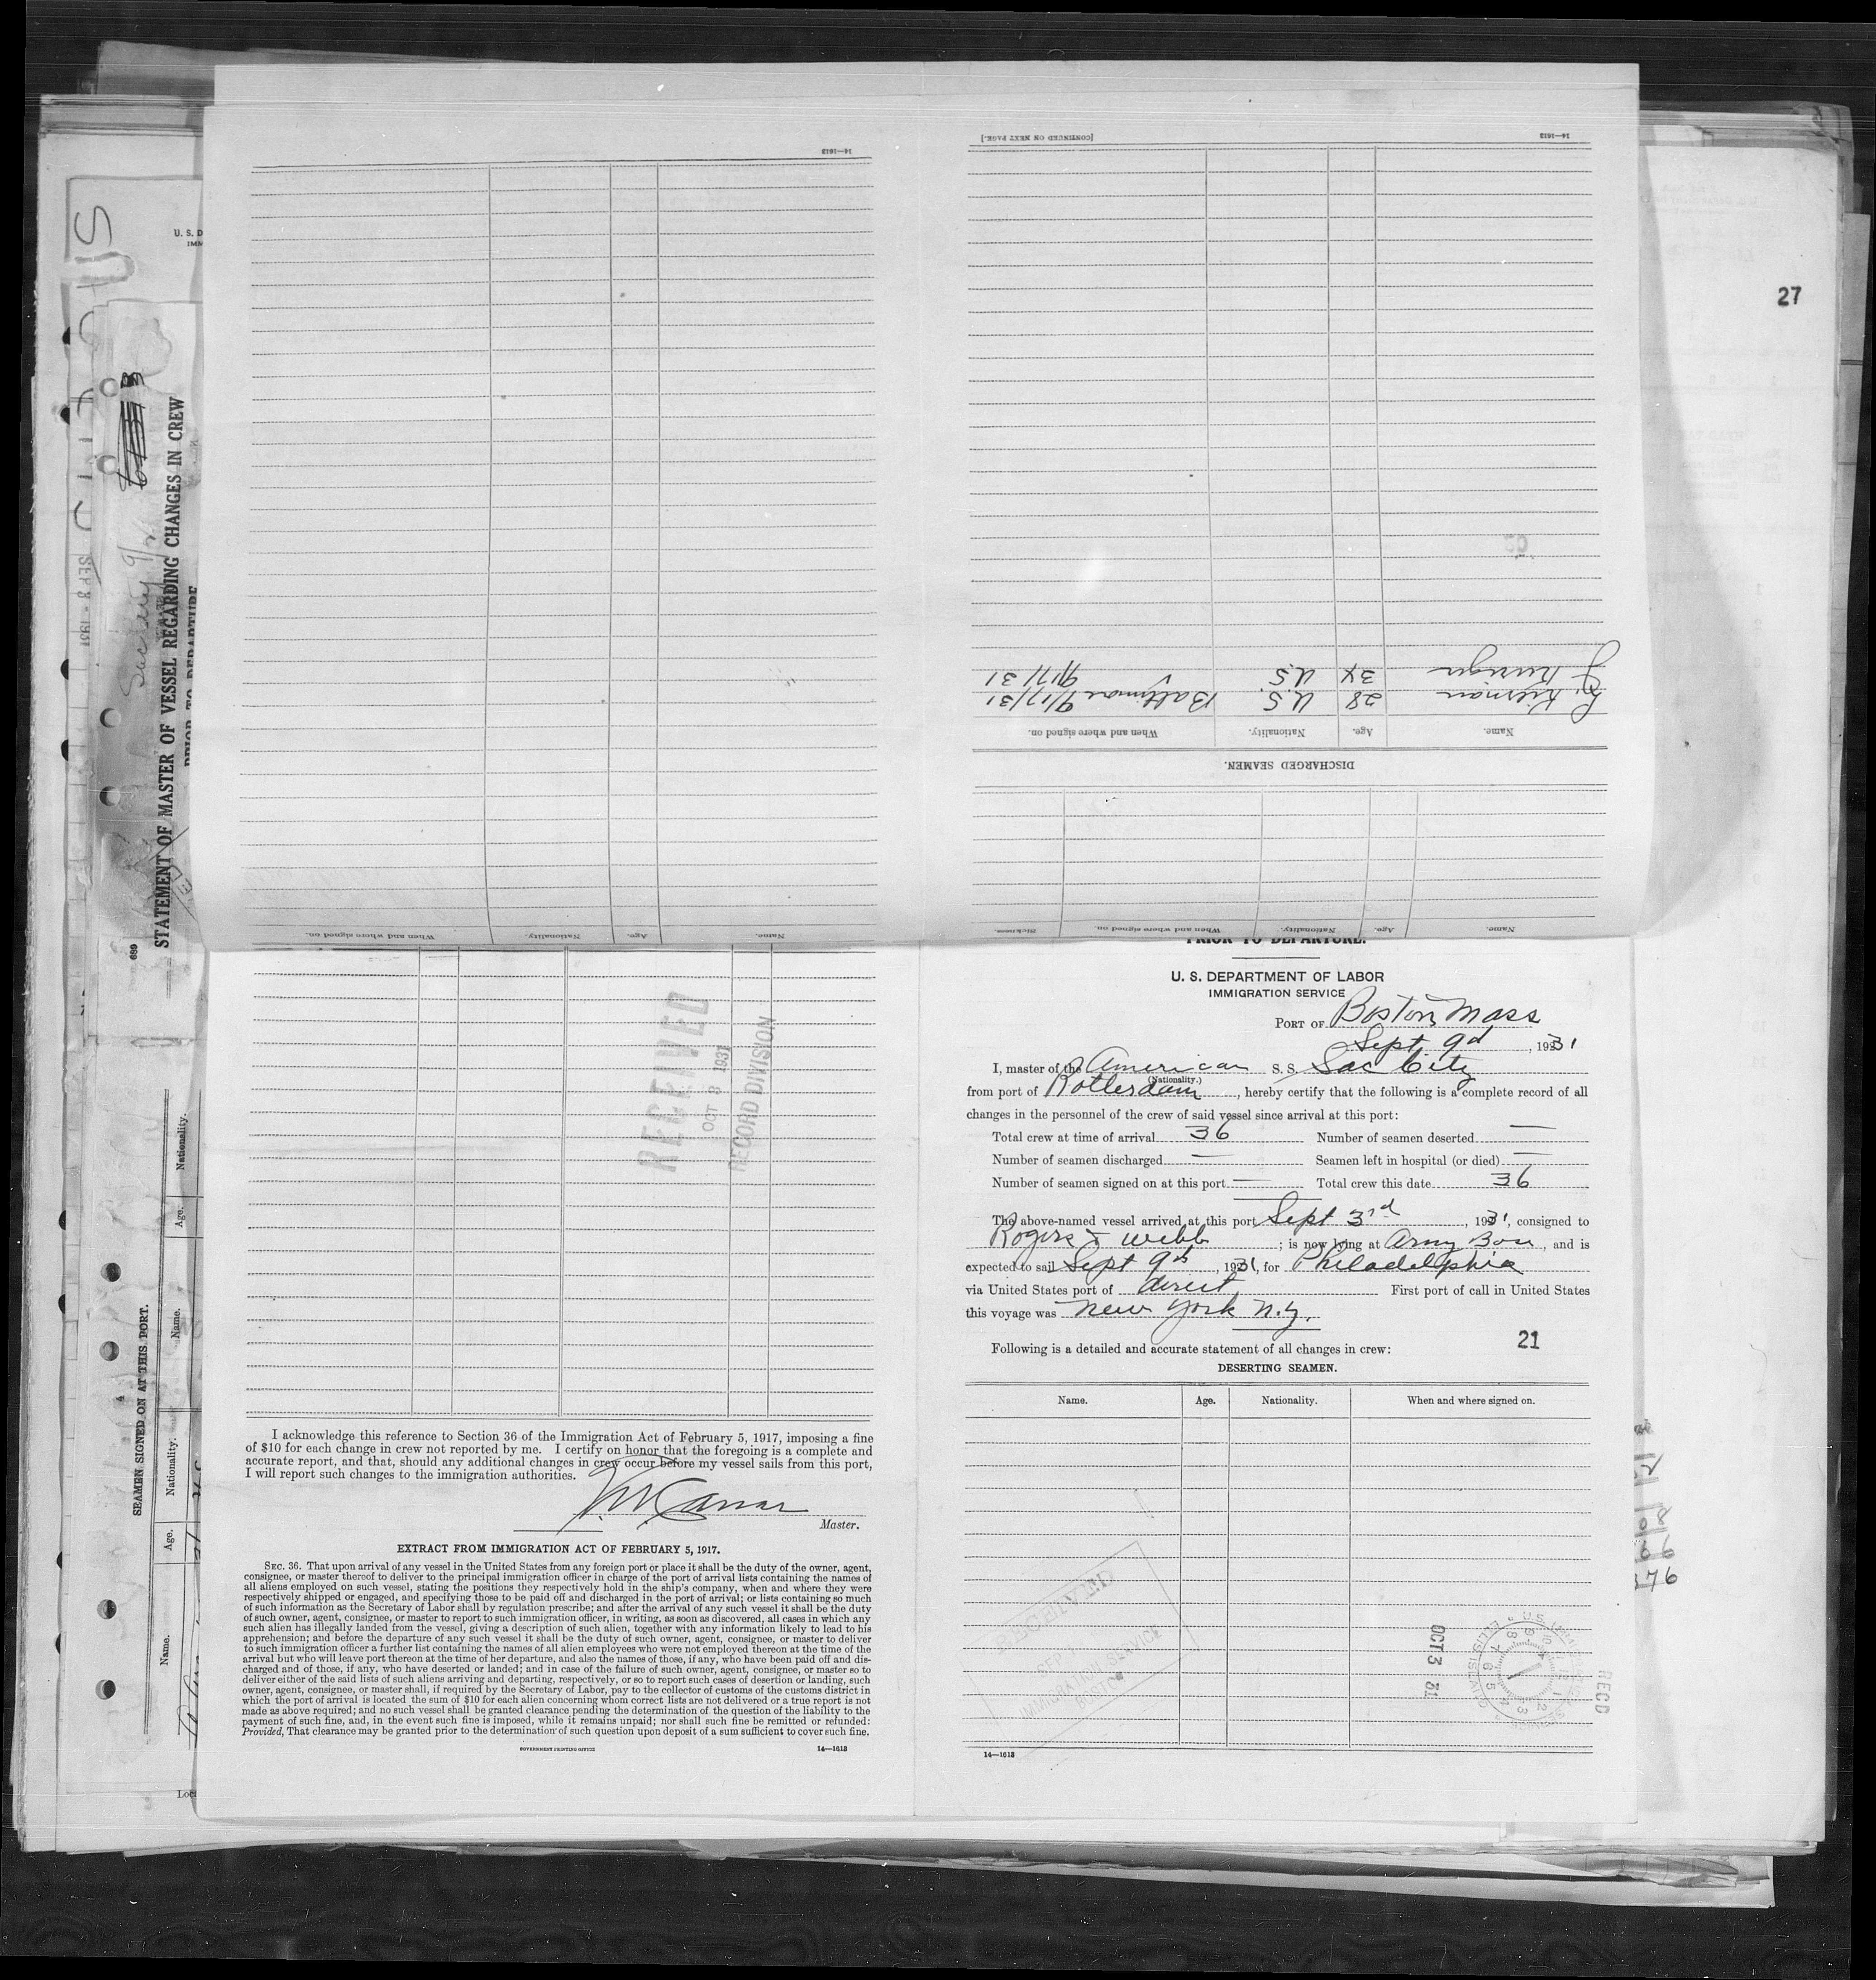 27
U. S. D
IMM
STATEMENT OF MASTER OF VESSEL REGARDING CHANGES IN CREW
PRIOR TO DEPARTURE
SEP 8 - 1931
689
SEAMEN SIGNED ON AT THIS PORT.
Name. Age. Nationality. Name. Age. Nationality.
Loc
14—1613
[CONTINUED ON NEXT PAGE.]
14—1613
Name. Age. Nationality. When and where signed on. Sickness.
DISCHARGED SEAMEN.
Name. Age. Nationality. When and where signed on.
28 U.S. Baltimore 9/17/31
34 U.S. 9/17/31
Name. Age. Nationality. When and where signed on.
RECEIVED
OCT 3 1931
RECORD DIVISION
I acknowledge this reference to Section 36 of the Immigration Act of February 5, 1917, imposing a fine
of $10 for each change in crew not reported by me. I certify on honor that the foregoing is a complete and
accurate report, and that, should any additional changes in crew occur before my vessel sails from this port,
I will report such changes to the immigration authorities.
Master.
EXTRACT FROM IMMIGRATION ACT OF FEBRUARY 5, 1917.
SEC. 36. That upon arrival of any vessel in the United States from any foreign port or place it shall be the duty of the owner, agent,
consignee, or master thereof to deliver to the principal immigration officer in charge of the port of arrival lists containing the names of
all aliens employed on such vessel, stating the positions they respectively hold in the ship's company, when and where they were
respectively shipped or engaged, and specifying those to be paid off and discharged in the port of arrival; or lists containing so much
of such information as the Secretary of Labor shall by regulation prescribe; and after the arrival of any such vessel it shall be the duty
of such owner, agent, consignee, or master to report to such immigration officer, in writing, as soon as discovered, all cases in which any
such alien has illegally landed from the vessel, giving a description of such alien, together with any information likely to lead to his
apprehension; and before the departure of any such vessel it shall be the duty of such owner, agent, consignee, or master to deliver
to such immigration officer a further list containing the names of all alien employees who were not employed thereon at the time of the
arrival but who will leave port thereon at the time of her departure, and also the names of those, if any, who have been paid off and dis-
charged and of those, if any, who have deserted or landed; and in case of the failure of such owner, agent, consignee, or master so to
deliver either of the said lists of such aliens arriving and departing, respectively, or so to report such cases of desertion or landing, such
owner, agent, consignee, or master shall, if required by the Secretary of Labor, pay to the collector of customs of the customs district in
which the port of arrival is located the sum of $10 for each alien concerning whom correct lists are not delivered or a true report is not
made as above required; and no such vessel shall be granted clearance pending the determination of the question of the liability to the
payment of such fine, and, in the event such fine is imposed, while it remains unpaid; nor shall such fine be remitted or refunded:
Provided, That clearance may be granted prior to the determination of such question upon deposit of a sum sufficient to cover such fine.
GOVERNMENT PRINTING OFFICE 14—1613
PRIOR TO DEPARTURE.
U. S. DEPARTMENT OF LABOR
IMMIGRATION SERVICE
PORT OF Boston, Mass
Sept 9d, 1931
I, master of the American S. S. Sac City
(Nationality.)
from port of Rotterdam, hereby certify that the following is a complete record of all
changes in the personnel of the crew of said vessel since arrival at this port:
Total crew at time of arrival 36 Number of seamen deserted —
Number of seamen discharged — Seamen left in hospital (or died) —
Number of seamen signed on at this port — Total crew this date 36
The above-named vessel arrived at this port Sept 3rd, 1931, consigned to
Rogers & Webb; is now lying at Army Base, and is
expected to sail Sept 9th, 1931, for Philadelphia
via United States port of direct First port of call in United States
this voyage was New York N.Y.
21
Following is a detailed and accurate statement of all changes in crew:
DESERTING SEAMEN.
Name. Age. Nationality. When and where signed on.
RECEIVED
SEP
IMMIGRATION SERVICE
BOSTON
OCT 3 31
RECD
14—1613